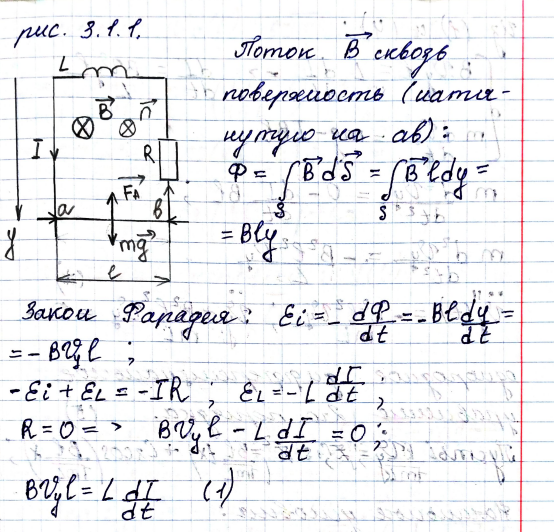 рис. 3.1.1.
L
B⃗ n⃗
I R
a F⃗_A b
y mg⃗
l
Поток B⃗ сквозь
поверхность (натя-
нутую на ab):
Φ = ∫_S B⃗ dS⃗ = ∫_S B⃗ l dy =
= Bly
Закон Фарадея: Ei = - dΦ/dt = -Bl dy/dt =
= - BV_y l ;
-Ei + E_L = -IR ; E_L = -L dI/dt ;
R = 0 => BV_y l - L dI/dt = 0 ;
BV_y l = L dI/dt (1)